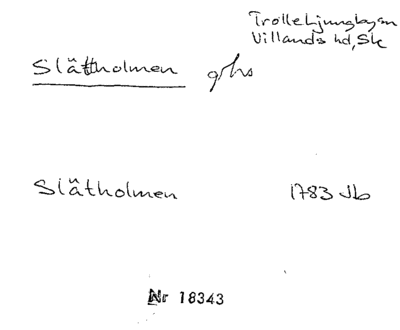 Trolle Ljungby sn
Villands hd, Sk
Slättholmen ghs
Slätholmen 1783 Jb
Nr 18343